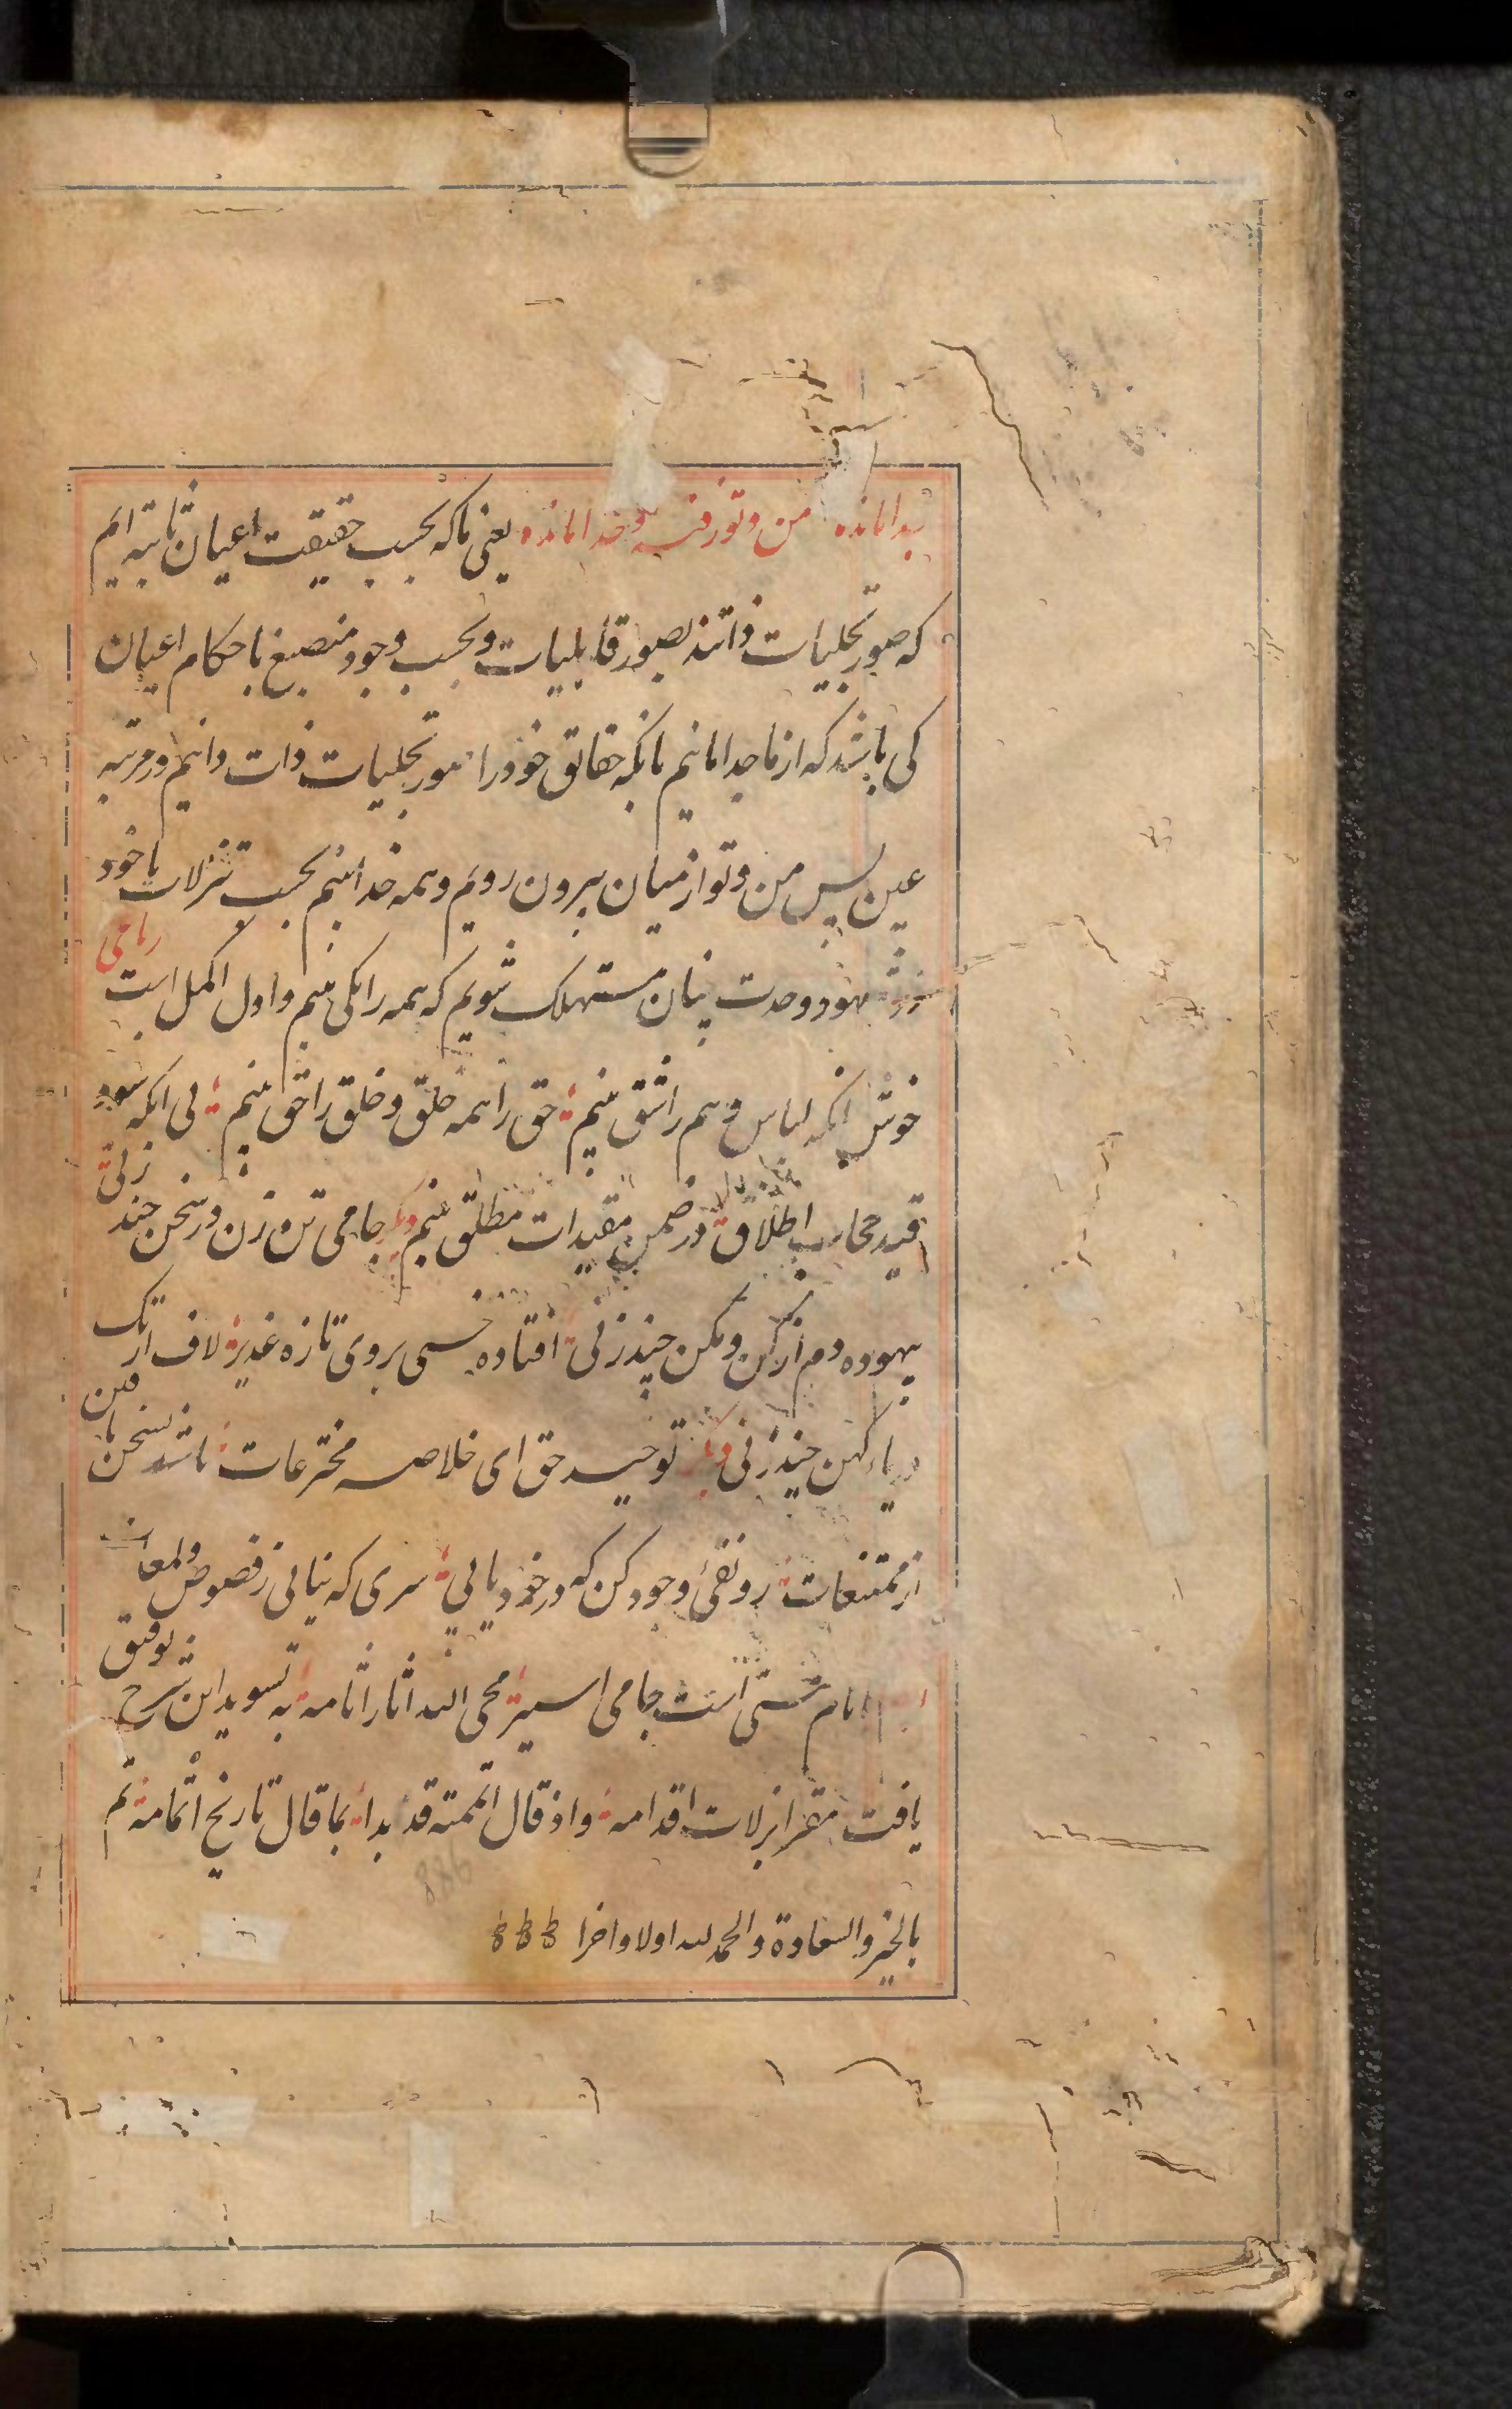 جدامانده من و تو رفته و خدا مانده یعنی ما که بحسب حقیقت اعیان ثابته ایم
که صور تجلیات ذاتند بصور قابلیات و بحسب وجود منصبغ باحکام اعیان
کی باشد که از ما جدا مانیم بانکه حقائق خود را صور تجلیات ذات دانیم در مرتبه
عین پس من و تو از میان بیرون رویم و همه خدا بینیم بحسب تنزلات یا خود
در شهود وحدت چنان مستهلک شویم که همه را یکی بینیم و اول اکمل است رباعی
خوش انکه لباس وهم را شق بینیم حق را همه خلق و خلق را حق بینیم بی انکه شود
قید حجاب اطلاق در ضمن مقیدات مطلق بینیم دیگر جامی تن زن در سخن چند زنی
بیهوده دم از کن و مکن چند زنی افتاده خسی بروی تازه غدیر لاف از تک
دریای کهن چند زنی دیگر توحید حق ای خلاصه مخترعات باشد بسخن یافتن
از ممتنعات رو نفی وجود کن که در خود یابی سری که نیابی ز فصوص و لمعات
انام مشتی است جامی اسیر محی الله اثار اثامه به تسوید این شرح توفیق
یافت مقرا بزلات اقدامه و اذ قال اتممته قد بدا بما قال تاریخ اتمامه تم
988
بالخیر والسعادة والحمد لله اولا واخرا